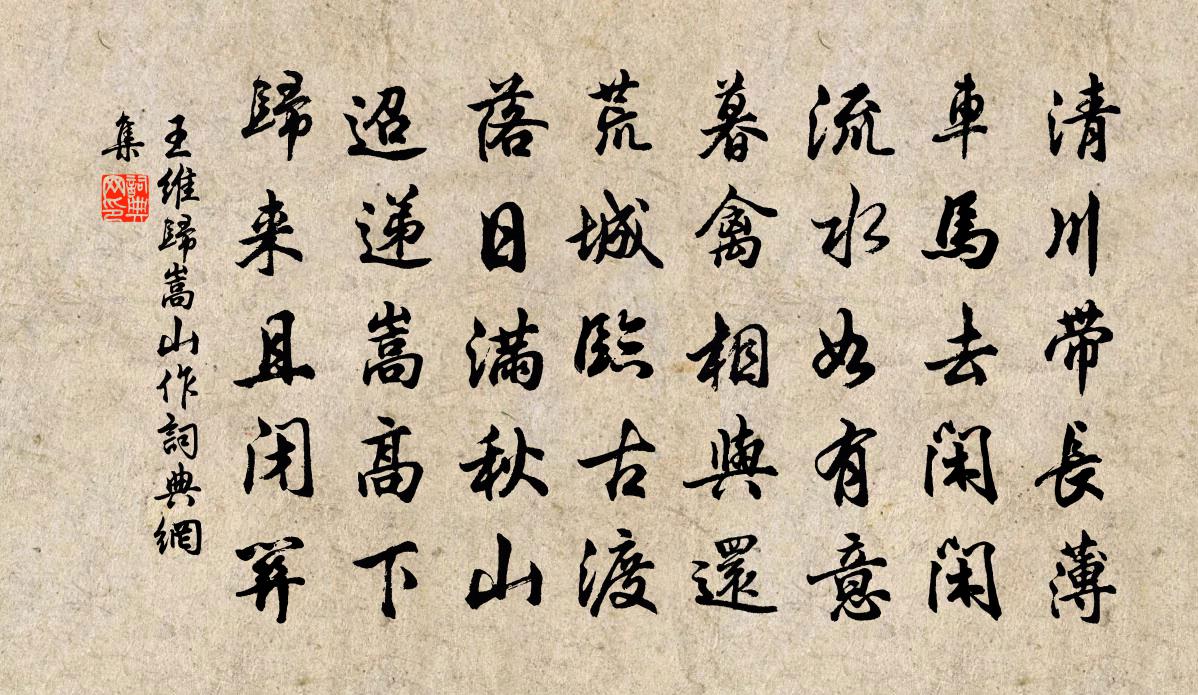 清川帶長薄
車馬去閑閑
流水如有意
暮禽相與還
荒城臨古渡
落日滿秋山
迢递嵩高下
歸来且閉關
王維歸嵩山作詞典網
集
詞典
网印